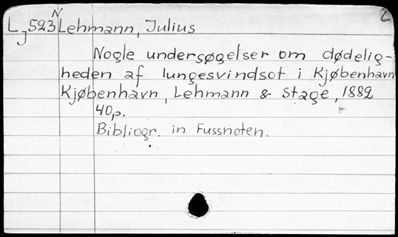 N 2
LJ523 Lehmann, Julius
Nogle undersøgelser om dødelig-
heden af lungesvindsot i Kjøbenhavn
Kjøbenhavn, Lehmann & Stage, 1882
40p.
Bibliogr. in Fussnoten.